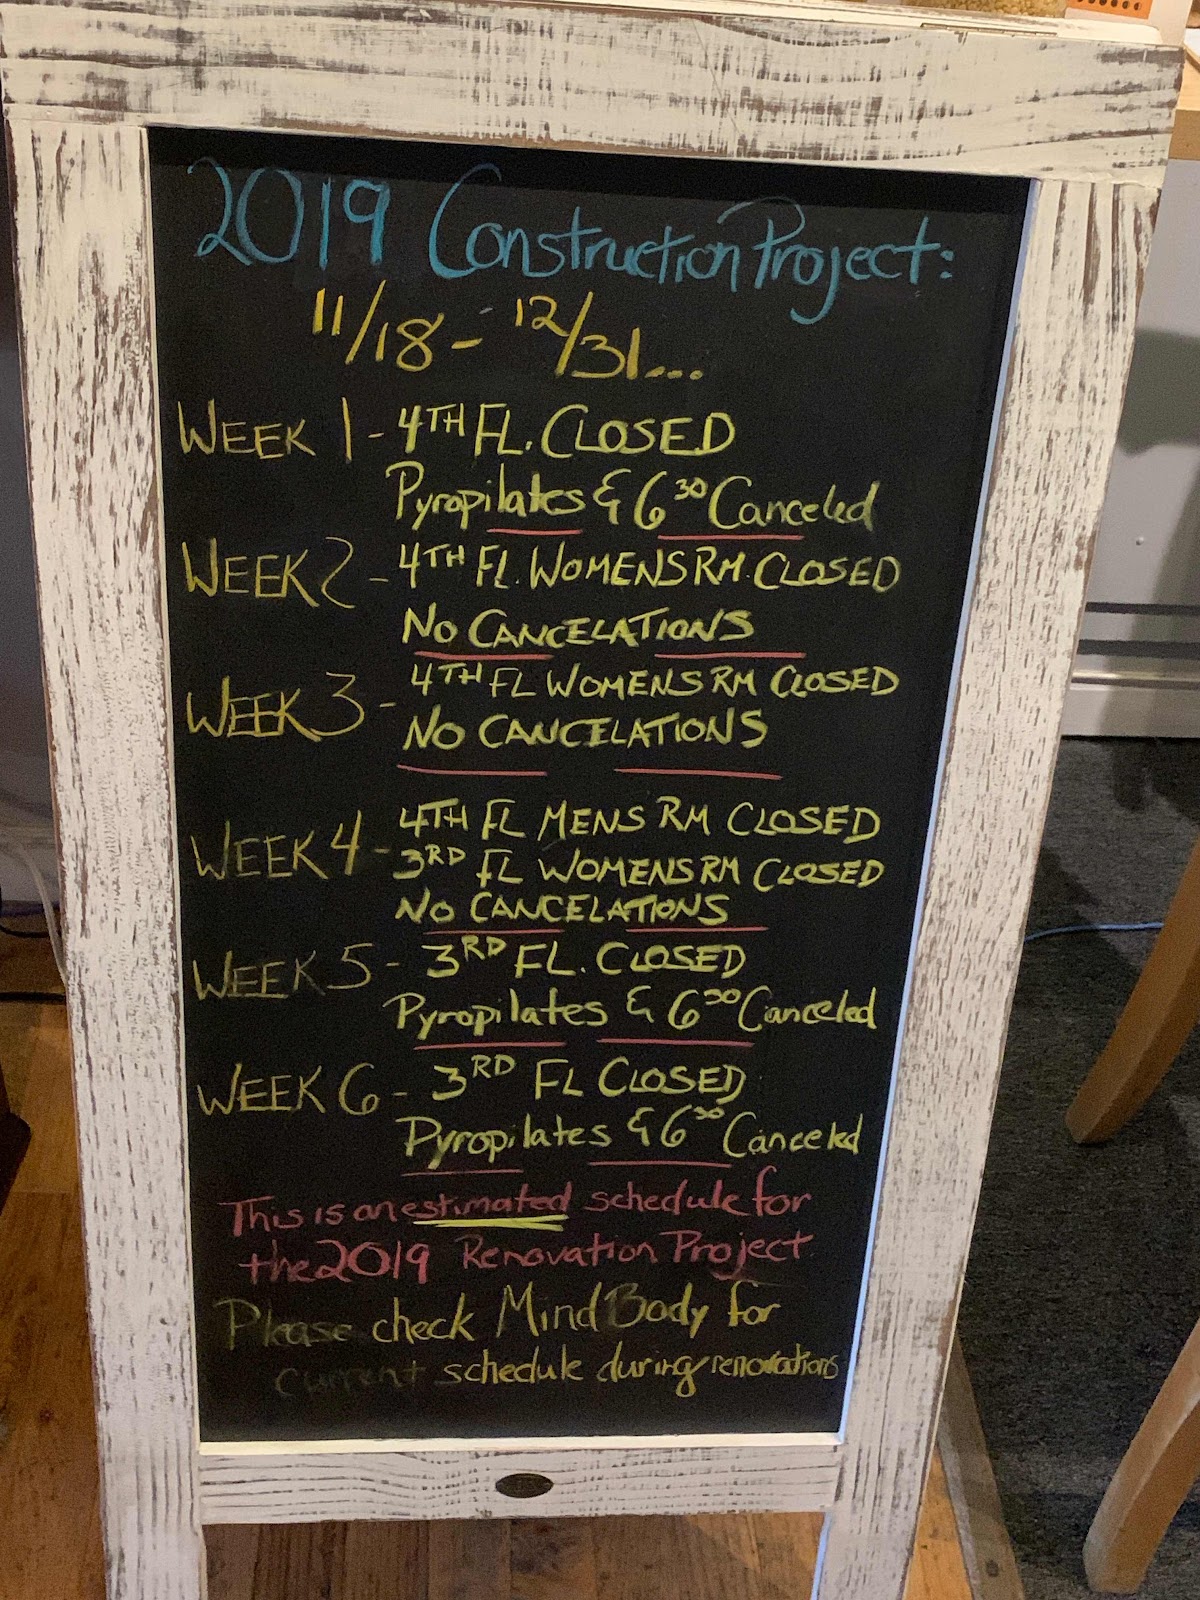 2019 Construction Project:
11/18 - 12/31...
WEEK 1 - 4TH FL. CLOSED
Pyropilates & 6 30 Canceled
WEEK 2 - 4TH FL. WOMENS RM. CLOSED
NO CANCELATIONS
WEEK 3 - 4TH FL WOMENS RM CLOSED
NO CANCELATIONS
WEEK 4 - 4TH FL MENS RM CLOSED
3RD FL WOMENS RM CLOSED
NO CANCELATIONS
WEEK 5 - 3RD FL. CLOSED
Pyropilates & 6 30 Canceled
WEEK 6 - 3RD FL CLOSED
Pyropilates & 6 30 Canceled
This is an estimated schedule for
the 2019 Renovation Project.
Please check MindBody for
current schedule during renovations